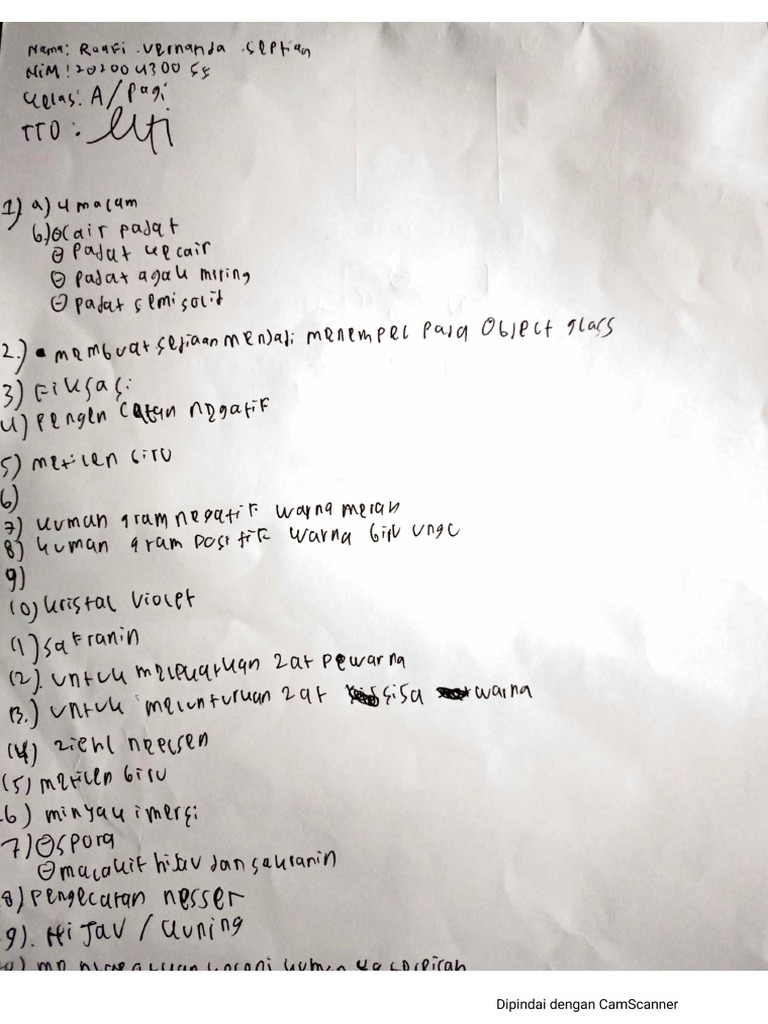 Nama: Raafi .Vernanda .Septian
NIM : 20200430055
Kelas: A/Pagi
TTD :
1) a) 4 macam
b) ⊖ cair padat
⊖ padat kecair
⊖ padat agak miring
⊖ padat semi solid
2.) • membuat sediaan menjadi menempel pada Object glass
3) Fiksasi
4) Pengencatan negatif
5) metilen biru
6)
7) kuman gram negatif warna merah
8) kuman gram positif warna biru ungu
9)
10) kristal violet
11) Safranin
12). untuk melekatkan zat pewarna
13.) untuk melunturkan zat sisa warna
14) ziehl neelsen
15) metilen biru
16) minyak imersi
7) ⊖ Spora
⊖ malakit hijau dan safranin
8) Pengecatan nesser
9). Hijau / Kuning